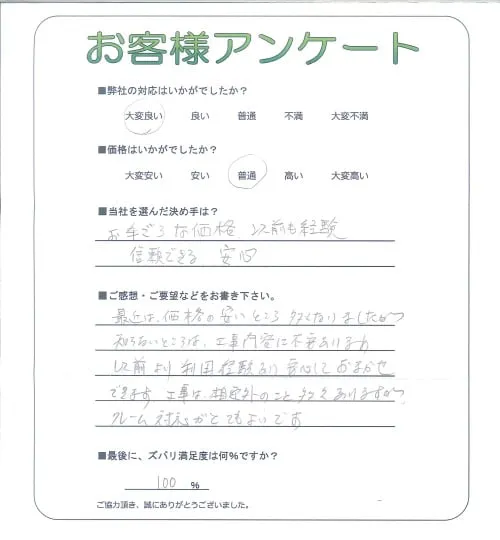 お客様アンケート
■弊社の対応はいかがでしたか？
大変良い 良い 普通 不満 大変不満
■価格はいかがでしたか？
大変安い 安い 普通 高い 大変高い
■当社を選んだ決め手は？
お手ごろな価格 以前も経験
信頼できる 安心
■ご感想・ご要望などをお書き下さい。
最近は、価格の安いところ多くなりましたが
知らないところは、工事内容に不安あります
以前より利用経験あり安心しておまかせ
できます。工事は、想定外のこと多々ありますが
クレーム対応がとてもよいです
■最後に、ズバリ満足度は何%ですか？
100 %
ご協力頂き、誠にありがとうございました。